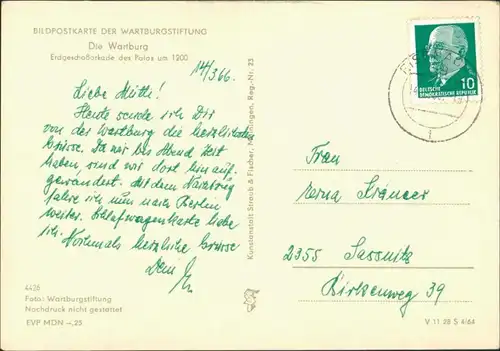 BILDPOSTKARTE DER WARTBURGSTIFTUNG
Die Wartburg
Erdgeschoßarkade des Palas um 1200
14/3 66.
Liebe Mutti!
Heute sende ich Dir
von der Wartburg die herzlichsten
Grüsse. Da wir bis Abend Zeit
haben, sind wir dort hinauf-
gewandert. Mit dem
fahre ich nun nach Berlin
weiter. Schlafwagenkarte habe
ich. Nochmals herzliche Grüsse
Dein
4426
Foto: Wartburgstiftung
Nachdruck nicht gestattet
EVP MDN –,25
Kunstanstalt Straub & Fischer, Meiningen, Reg.-Nr. 23
10
DEUTSCHE
DEMOKRATISCHE REPUBLIK
Frau
Erna
2355 Sassnitz
Birkenweg 39
V 11 28 S 4/64